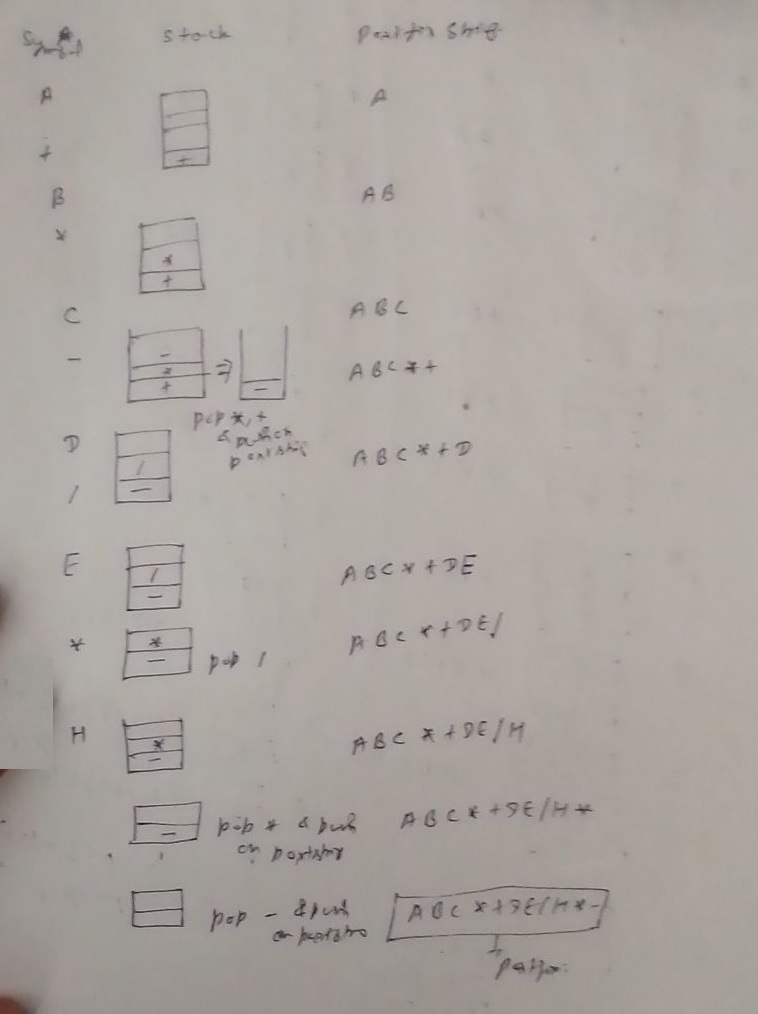 Symbol stack Postfix string
A A
+ +
B AB
* * +
C ABC
- - * + ⇒ - ABC*+
pop *, +
& push
D ABC*+D
/ / -
E / - ABC*+DE
* * - pop / ABC*+DE/
H * - ABC*+DE/H
- pop * & push ABC*+DE/H*
on postfix
pop - & push ABC*+DE/H*-
on postfix